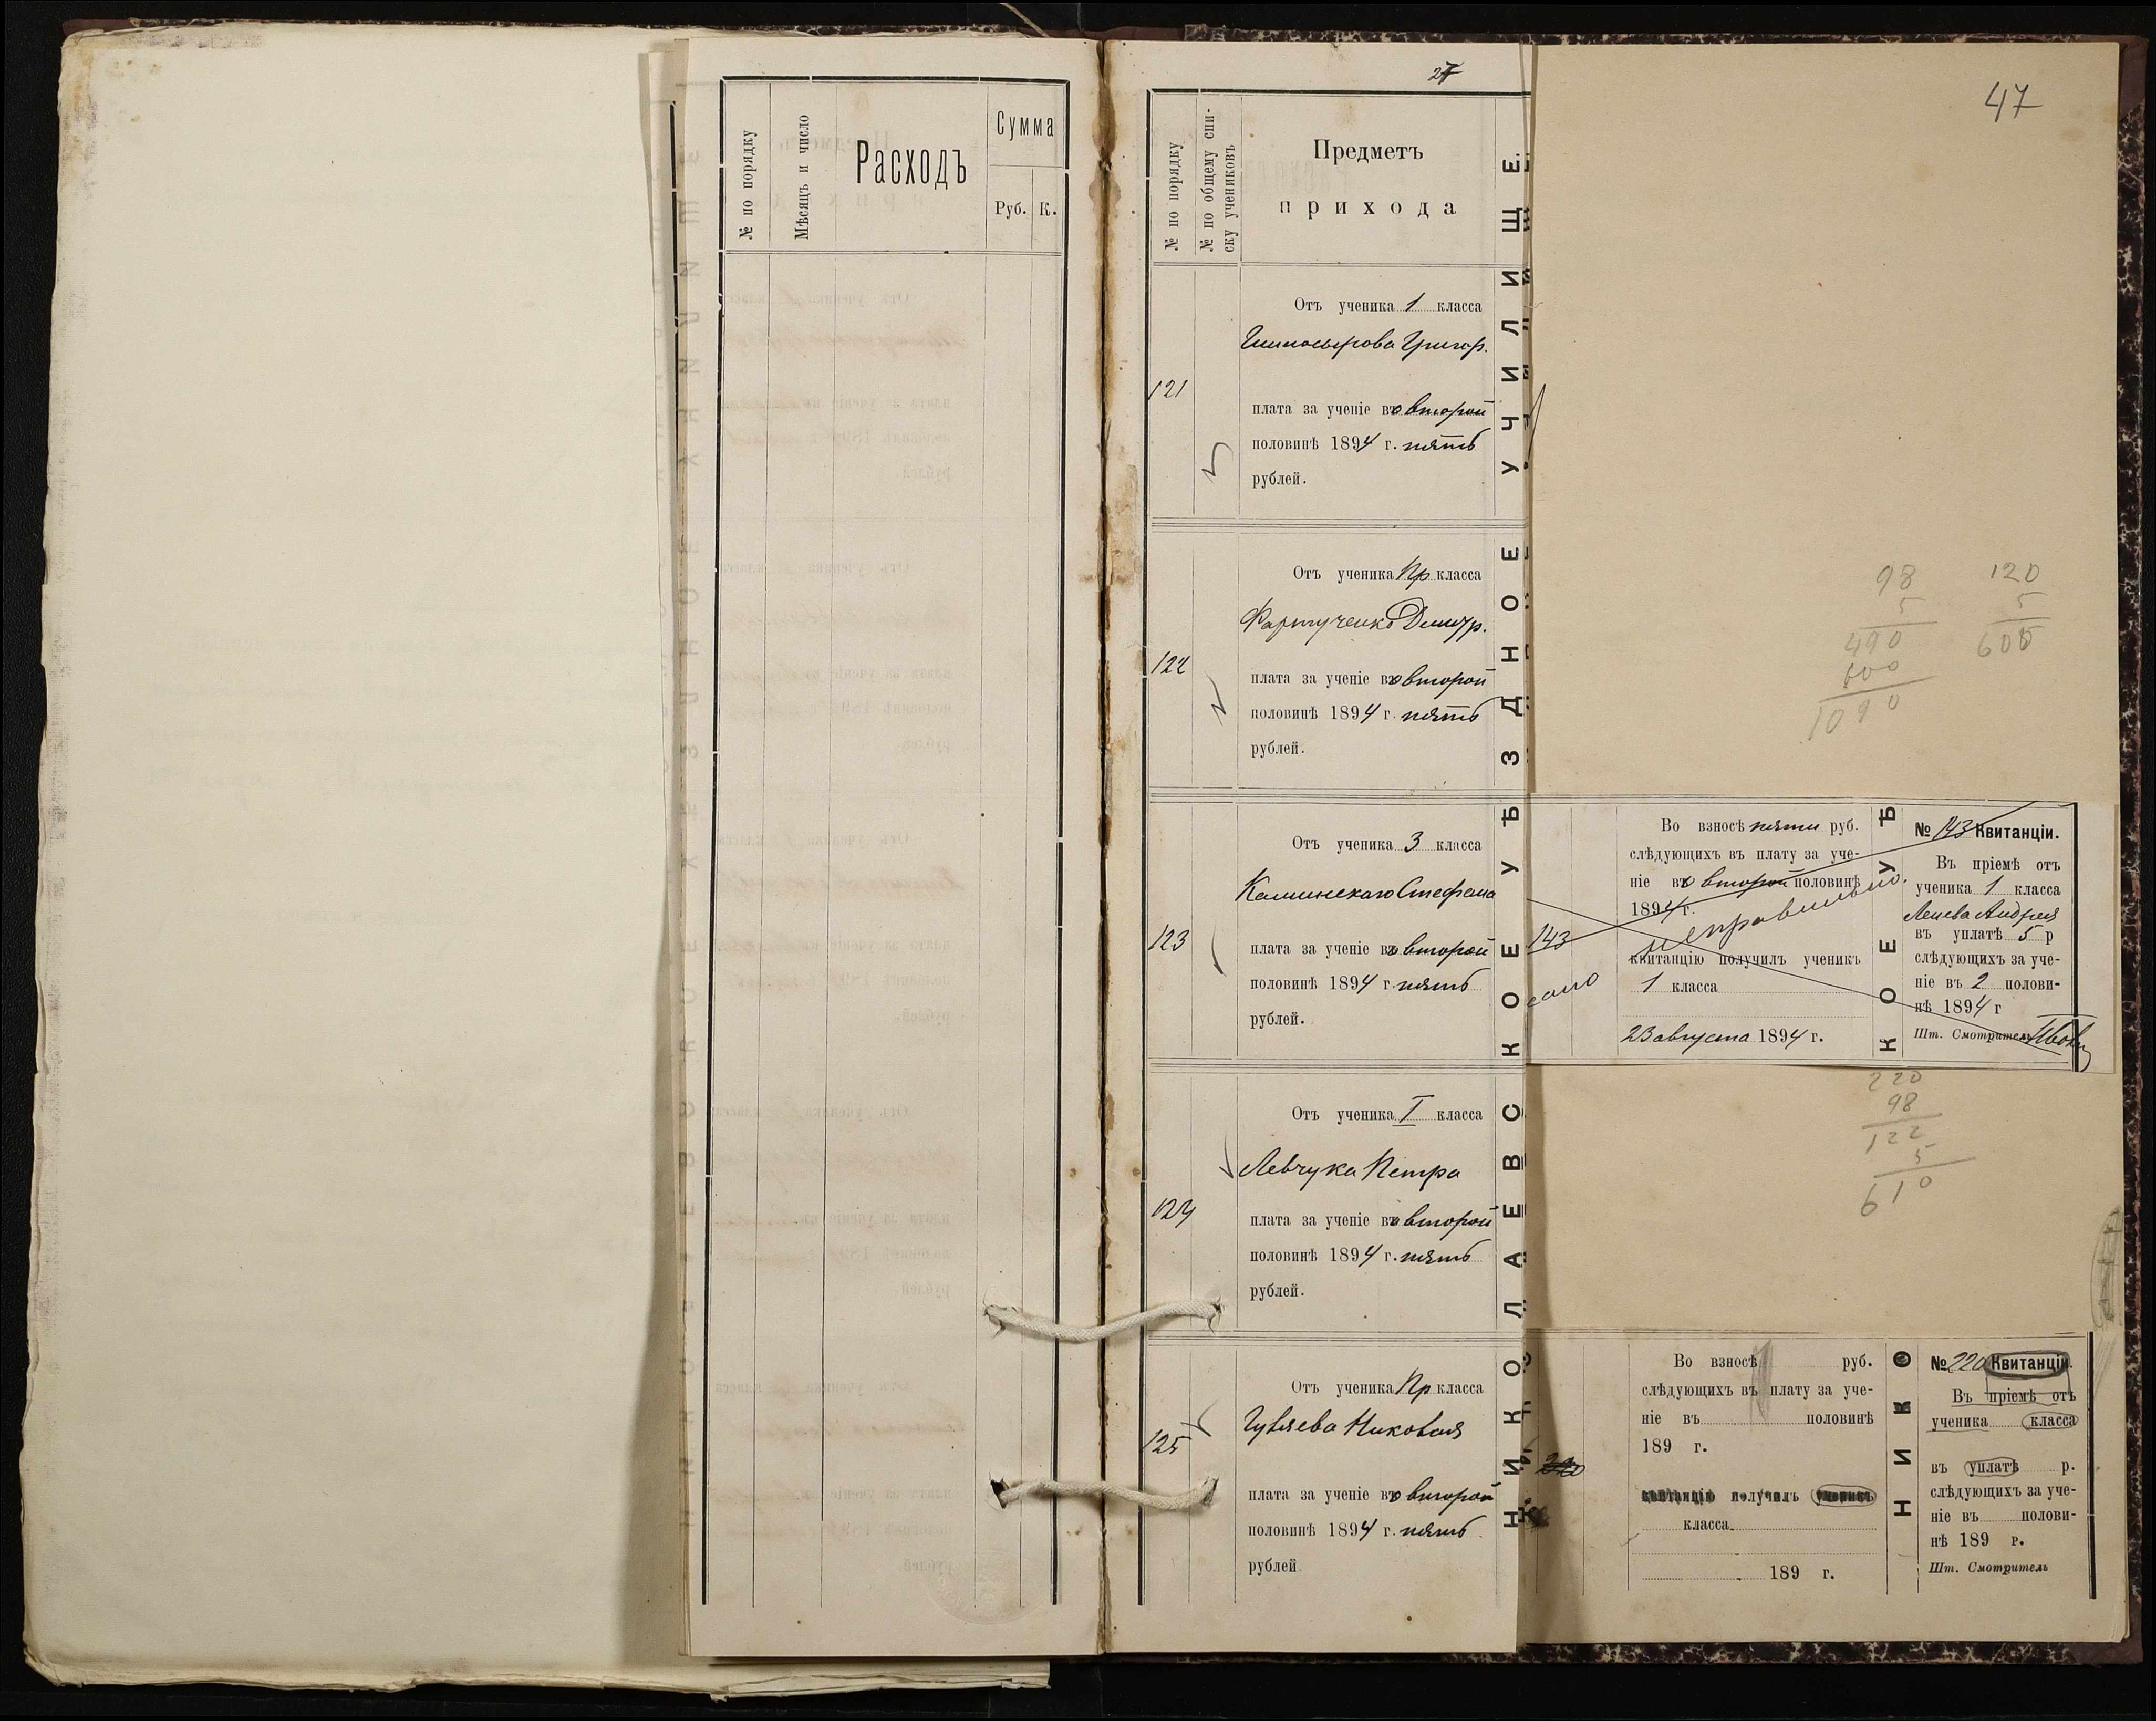 № по порядку
Мѣсяцъ и число
Расходъ
Сумма
Руб. К.
27
№ по порядку
№ по общему спи-
ску учениковъ
Предметъ
прихода
Отъ ученика 1 класса
Григор.
121
плата за ученіе во второй
половинѣ 1894 г. пять
рублей.
Отъ ученика Пр класса
Фартученко Димитр.
122
плата за ученіе во второй
половинѣ 1894 г. пять
рублей.
Отъ ученика 3 класса
Каминскаго Стефана
123
плата за ученіе во второй
половинѣ 1894 г. пять
рублей.
Отъ ученика I класса
Левчука Петра
124
плата за ученіе во второй
половинѣ 1894 г. пять
рублей.
Отъ ученика Пр класса
Гуляева Николая
125
плата за ученіе во второй
половинѣ 1894 г. пять
рублей.
НИКОЛАЕВСКОЕ УѢЗДНОЕ УЧИЛИЩЕ
47
98
5
490
600
1090
120
5
600
Во взносѣ пяти руб.
слѣдующихъ въ плату за уче-
ніе во второй половинѣ
1894 г.
неправильно.
143
квитанцію получилъ ученикъ
1 класса
23 августа 1894 г.
КОЕ УѢ
№ 143 Квитанціи.
Въ пріемѣ отъ
ученика 1 класса
Андрея
въ уплатѣ 5 р
слѣдующихъ за уче-
ніе въ 2 полови-
нѣ 1894 г
Шт. Смотритель
220
98
122
5
610
Во взносѣ руб.
слѣдующихъ въ плату за уче-
ніе въ половинѣ
189 г.
220
квитанцію получилъ ученикъ
класса
189 г.
НИКО
№ 220 Квитанціи.
Въ пріемѣ отъ
ученика класса
въ уплатѣ р.
слѣдующихъ за уче-
ніе въ полови-
нѣ 189 г.
Шт. Смотритель